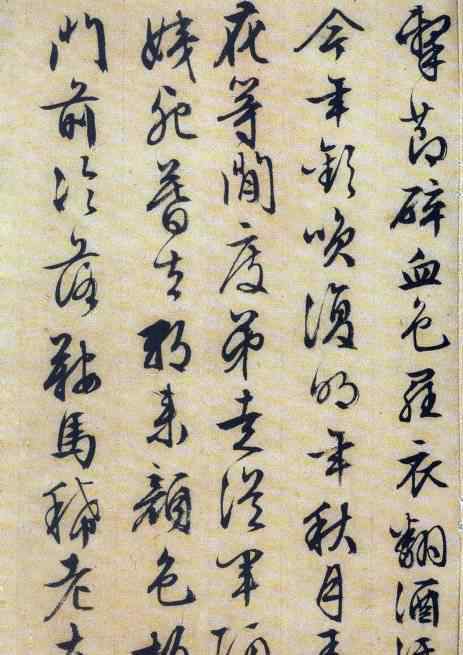 擊節碎血色羅衣翻酒污
今年歡咲復明年秋月春
花等閒度弟走從軍阿
姨死暮去朝來顏色故
門前冷落鞍馬稀老大